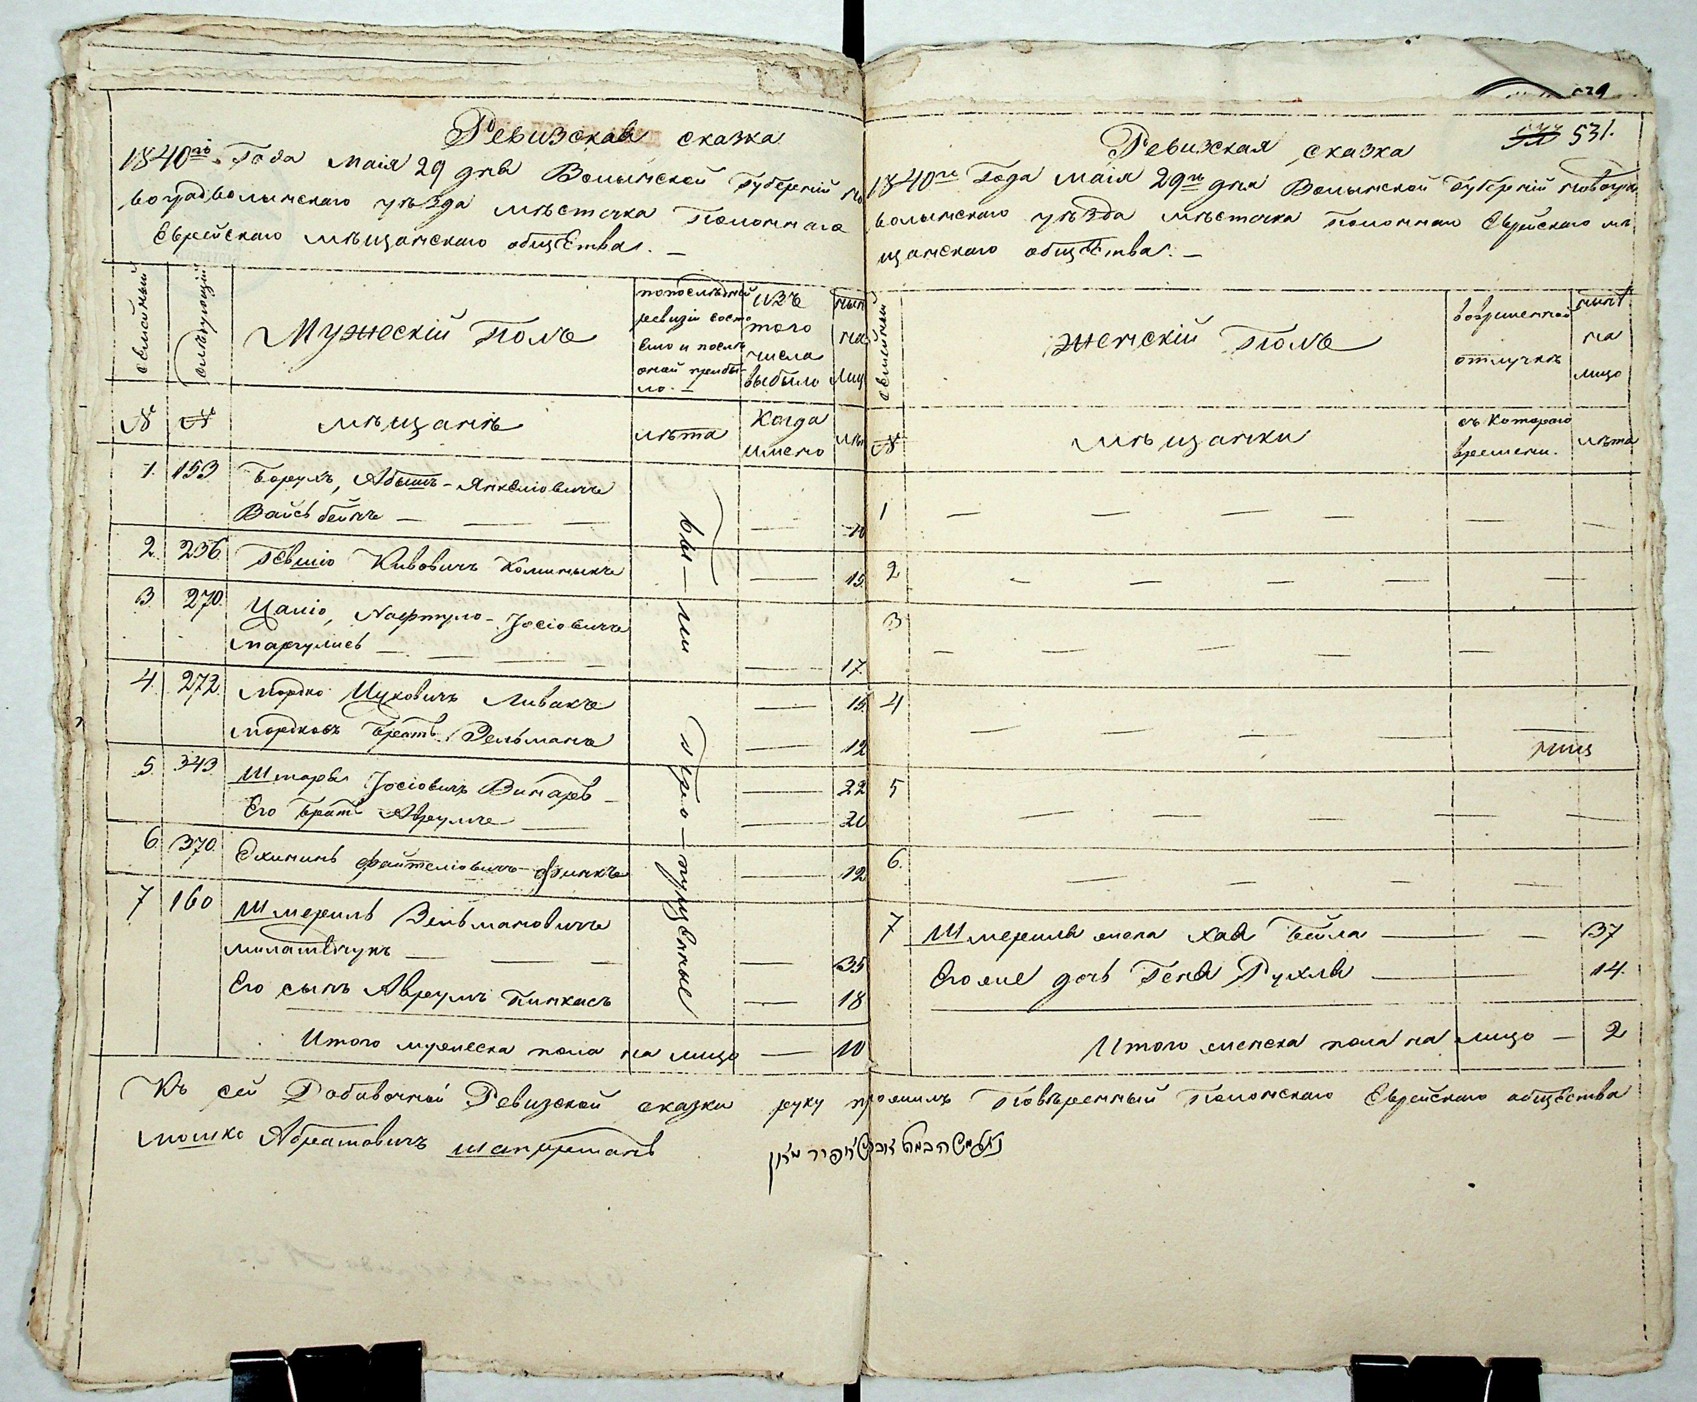 Ревизская сказка
1840го Года Маія 29 дня Волынской Губерній Но
воградволынскаго уѣзда мѣстечка Полоннаго
Еврейскаго мѣщанскаго общества. —
семейный
слѣдующій
Мужескій Полъ
попослѣдней
ревизіи состо
яло и послѣ
оной прибы-
ло. —
изъ
того
числа
выбыло
нын
на
лиц
№
№
мѣщанѣ
лѣта
Когда
имено
лѣ
1. 153 Борухъ, Абышъ-Янкеліовичъ
Вайсбейнъ — — — — 10
2. 236. Гевшіо Кивовичъ — 15.
3. 270. Цаліо, Нафтуло-Іосіовичъ
Маргулисъ — — — — 17.
4. 272. Мордко Ицковичъ Ливакъ — 15.
Мордковъ Братъ Зельманъ — 12
5. 343. Шмарья Іосіовичъ Винарѣ — 22
Его Братъ Аврумъ — — 20
6. 370. Файтеліовичъ-Финкъ — 12
7 160 Шмериль Зельмановичъ
— — — — 35
Его сынъ Аврумъ Пинкасъ — 18
Итого мужеска пола на лицо — 10
бы — ли
пропущенные
Ревизская сказка
531.
1840го Года Маія 29го дня Волынской Губерній Новоград
волынскаго уѣзда мѣстечка Полоннаго Еврейскаго мѣ
щанскаго общества. —
семейный
женскій Полъ
вовременной
отлучкѣ
нынѣ
на
лицо
№
мѣщанки
съ котораго
времени.
лѣта
1 — — — — — —
2 — — — — —
3 — — — — —
4 — — — — —
5 — — — — — —
6. — — — — —
7 Шмериля жена Хая Бейла — — 37
Его же дочь Геня Рухля — — 14.
Итого женска пола на лицо — 2
Къ сей Добавочной Ревизской сказки руку приложилъ Повѣренный Полонскаго Еврейскаго общества
Мошко Абрамовичъ